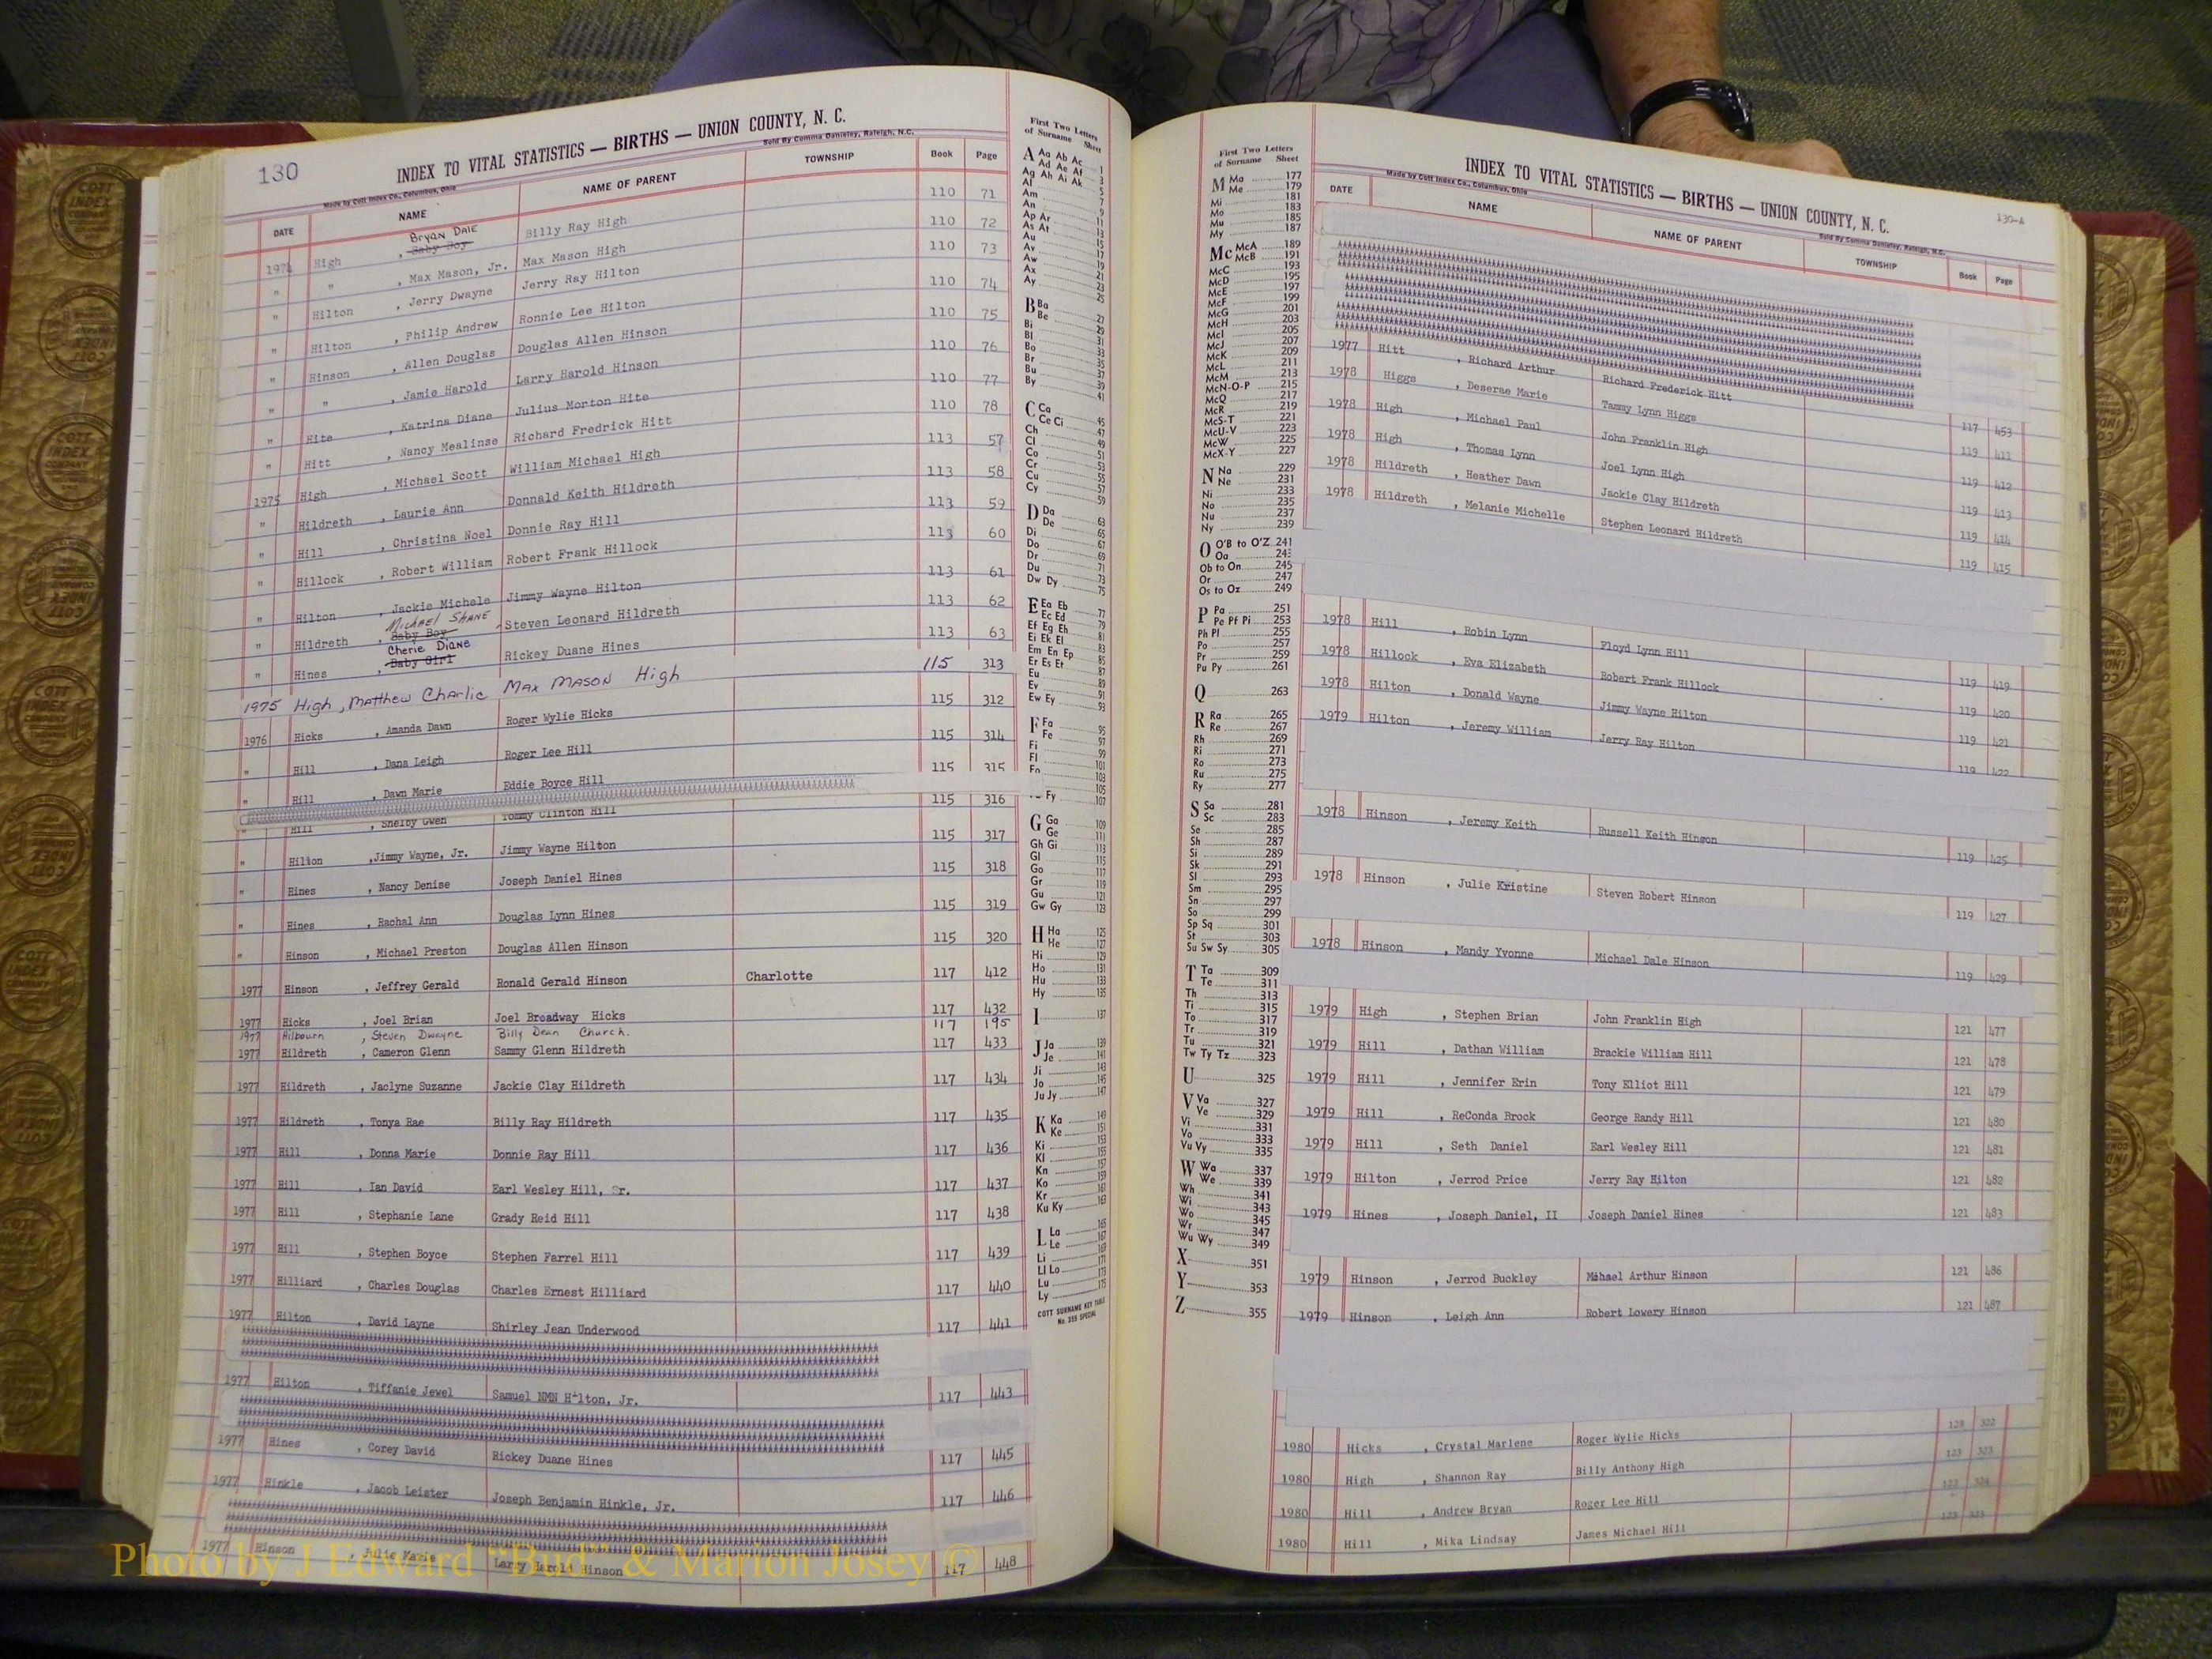 130
INDEX TO VITAL STATISTICS — BIRTHS — UNION COUNTY, N. C.
Made by Cott Index Co., Columbus, Ohio
Sold By Comma Danieley, Raleigh, N.C.
DATE NAME NAME OF PARENT TOWNSHIP Book Page
1974 High , Bryan Dale Baby Boy Billy Ray High 110 71
" " , Max Mason, Jr. Max Mason High 110 72
" Hilton , Jerry Dwayne Jerry Ray Hilton 110 73
" Hilton , Philip Andrew Ronnie Lee Hilton 110 74
" Hinson , Allen Douglas Douglas Allen Hinson 110 75
" " , Jamie Harold Larry Harold Hinson 110 76
" Hite , Katrina Diane Julius Morton Hite 110 77
" Hitt , Nancy Mealinse Richard Fredrick Hitt 110 78
1975 High , Michael Scott William Michael High 113 57
" Hildreth , Laurie Ann Donnald Keith Hildreth 113 58
" Hill , Christina Noel Donnie Ray Hill 113 59
" Hillock , Robert William Robert Frank Hillock 113 60
" Hilton , Jackie Michele Jimmy Wayne Hilton 113 61
" Hildreth , Michael Shane Baby Boy Steven Leonard Hildreth 113 62
" Hines , Cherie Diane Baby Girl Rickey Duane Hines 113 63
1975 High, Matthew Charlie Max Mason High 115 313
1976 Hicks , Amanda Dawn Roger Wylie Hicks 115 312
" Hill , Dana Leigh Roger Lee Hill 115 314
" Hill , Dawn Marie Eddie Boyce Hill 115 315
" Hill , Shelby Gwen Tommy Clinton Hill 115 316
" Hilton ,Jimmy Wayne, Jr. Jimmy Wayne Hilton 115 317
" Hines , Nancy Denise Joseph Daniel Hines 115 318
" Hines , Rachal Ann Douglas Lynn Hines 115 319
" Hinson , Michael Preston Douglas Allen Hinson 115 320
1977 Hinson , Jeffrey Gerald Ronald Gerald Hinson Charlotte 117 412
1977 Hicks , Joel Brian Joel Broadway Hicks 117 432
1977 Hilbourn , Steven Dwayne Billy Dean Church. 117 195
1977 Hildreth , Cameron Glenn Sammy Glenn Hildreth 117 433
1977 Hildreth , Jaclyne Suzanne Jackie Clay Hildreth 117 434
1977 Hildreth , Tonya Rae Billy Ray Hildreth 117 435
1977 Hill , Donna Marie Donnie Ray Hill 117 436
1977 Hill , Ian David Earl Wesley Hill, Sr. 117 437
1977 Hill , Stephanie Lane Grady Reid Hill 117 438
1977 Hill , Stephen Boyce Stephen Farrel Hill 117 439
1977 Hilliard , Charles Douglas Charles Ernest Hilliard 117 440
1977 Hilton , David Layne Shirley Jean Underwood 117 441
1977 Hilton , Tiffanie Jewel Samuel NMN Hilton, Jr. 117 443
1977 Hines , Corey David Rickey Duane Hines 117 445
1977 Hinkle , Jacob Leister Joseph Benjamin Hinkle, Jr. 117 446
1977 Hinson , Julie Marie Larry Harold Hinson 117 448
First Two Letters
of Surname Sheet
A Aa Ab Ac 1
Ad Ae Af 3
Ag Ah Ai Ak 5
Al 7
Am 9
An 11
Ap Ar 13
As At 15
Au 17
Av 19
Aw 21
Ax 23
Ay 25
B Ba 27
Be 29
Bi 31
Bl 33
Bo 35
Br 37
Bu 39
By 41
C Ca 45
Ce Ci 47
Ch 49
Cl 51
Co 53
Cr 55
Cu 57
Cy 59
D Da 63
De 65
Di 67
Do 69
Dr 71
Du 73
Dw Dy 75
E Ea Eb 77
Ec Ed 79
Ef Eg Eh 81
Ei Ek El 83
Em En Ep 85
Er Es Et 87
Eu 89
Ev 91
Ew Ey 93
F Fa 95
Fe 97
Fi 99
Fl 101
Fo 103
105
Fy 107
G Ga 109
Ge 111
Gh Gi 113
Gl 115
Go 117
Gr 119
Gu 121
Gw Gy 123
H Ha 125
He 127
Hi 129
Ho 131
Hu 133
Hy 135
I 137
J Ja 139
Je 141
Ji 143
Jo 145
Ju Jy 147
K Ka 149
Ke 151
Ki 153
Kl 155
Kn 157
Ko 159
Kr 161
Ku Ky 163
L La 165
Le 167
Li 169
Ll Lo 171
Lu 173
Ly 175
COTT SURNAME KEY TABLE
No. 355 SPECIAL
First Two Letters
of Surname Sheet
M Ma 177
Me 179
Mi 181
Mo 183
Mu 185
My 187
Mc McA 189
McB 191
McC 193
McD 195
McE 197
McF 199
McG 201
McH 203
McI 205
McJ 207
McK 209
McL 211
McM 213
McN-O-P 215
McQ 217
McR 219
McS-T 221
McU-V 223
McW 225
McX-Y 227
N Na 229
Ne 231
Ni 233
No 235
Nu 237
Ny 239
O O'B to O'Z 241
Oa 243
Ob to On 245
Or 247
Os to Oz 249
P Pa 251
Pe Pf Pi 253
Ph Pl 255
Po 257
Pr 259
Pu Py 261
Q 263
R Ra 265
Re 267
Rh 269
Ri 271
Ro 273
Ru 275
Ry 277
S Sa 281
Sc 283
Se 285
Sh 287
Si 289
Sk 291
Sl 293
Sm 295
Sn 297
So 299
Sp Sq 301
St 303
Su Sw Sy 305
T Ta 309
Te 311
Th 313
Ti 315
To 317
Tr 319
Tu 321
Tw Ty Tz 323
U 325
V Va 327
Ve 329
Vi 331
Vo 333
Vu Vy 335
W Wa 337
We 339
Wh 341
Wi 343
Wo 345
Wr 347
Wu Wy 349
X 351
Y 353
Z 355
130-A
INDEX TO VITAL STATISTICS — BIRTHS — UNION COUNTY, N. C.
Made by Cott Index Co., Columbus, Ohio
Sold By Comma Danieley, Raleigh, N.C.
DATE NAME NAME OF PARENT TOWNSHIP Book Page
1977 Hitt , Richard Arthur Richard Frederick Hitt 117 453
1978 Higgs , Deserae Marie Tammy Lynn Higgs 119 411
1978 High , Michael Paul John Franklin High 119 412
1978 High , Thomas Lynn Joel Lynn High 119 413
1978 Hildreth , Heather Dawn Jackie Clay Hildreth 119 414
1978 Hildreth , Melanie Michelle Stephen Leonard Hildreth 119 415
1978 Hill , Robin Lynn Floyd Lynn Hill 119 419
1978 Hillock , Eva Elizabeth Robert Frank Hillock 119 420
1978 Hilton , Donald Wayne Jimmy Wayne Hilton 119 421
1979 Hilton , Jeremy William Jerry Ray Hilton 119 422
1978 Hinson , Jeremy Keith Russell Keith Hinson 119 425
1978 Hinson , Julie Kristine Steven Robert Hinson 119 427
1978 Hinson , Mandy Yvonne Michael Dale Hinson 119 429
1979 High , Stephen Brian John Franklin High 121 477
1979 Hill , Dathan William Brackie William Hill 121 478
1979 Hill , Jennifer Erin Tony Elliot Hill 121 479
1979 Hill , ReConda Brock George Randy Hill 121 480
1979 Hill , Seth Daniel Earl Wesley Hill 121 481
1979 Hilton , Jerrod Price Jerry Ray Hilton 121 482
1979 Hines , Joseph Daniel, II Joseph Daniel Hines 121 483
1979 Hinson , Jerrod Buckley Mchael Arthur Hinson 121 486
1979 Hinson , Leigh Ann Robert Lowery Hinson 121 487
1980 Hicks , Crystal Marlene Roger Wylie Hicks 322
1980 High , Shannon Ray Billy Anthony High 123 323
1980 Hill , Andrew Bryan Roger Lee Hill 123 324
1980 Hill , Mika Lindsay James Michael Hill 123 325
Photo by J Edward "Bud" & Marion Josey ©